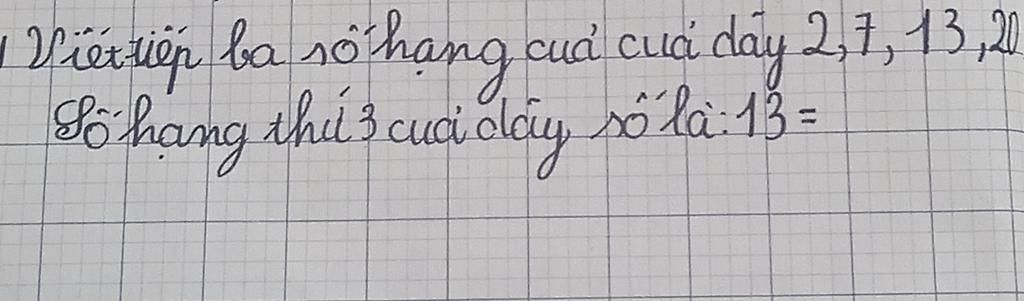 Viết tiếp ba số hạng cuả cuả dãy 2,7, 13,20
Số hạng thứ 3 cuả dãy số là: 13 =